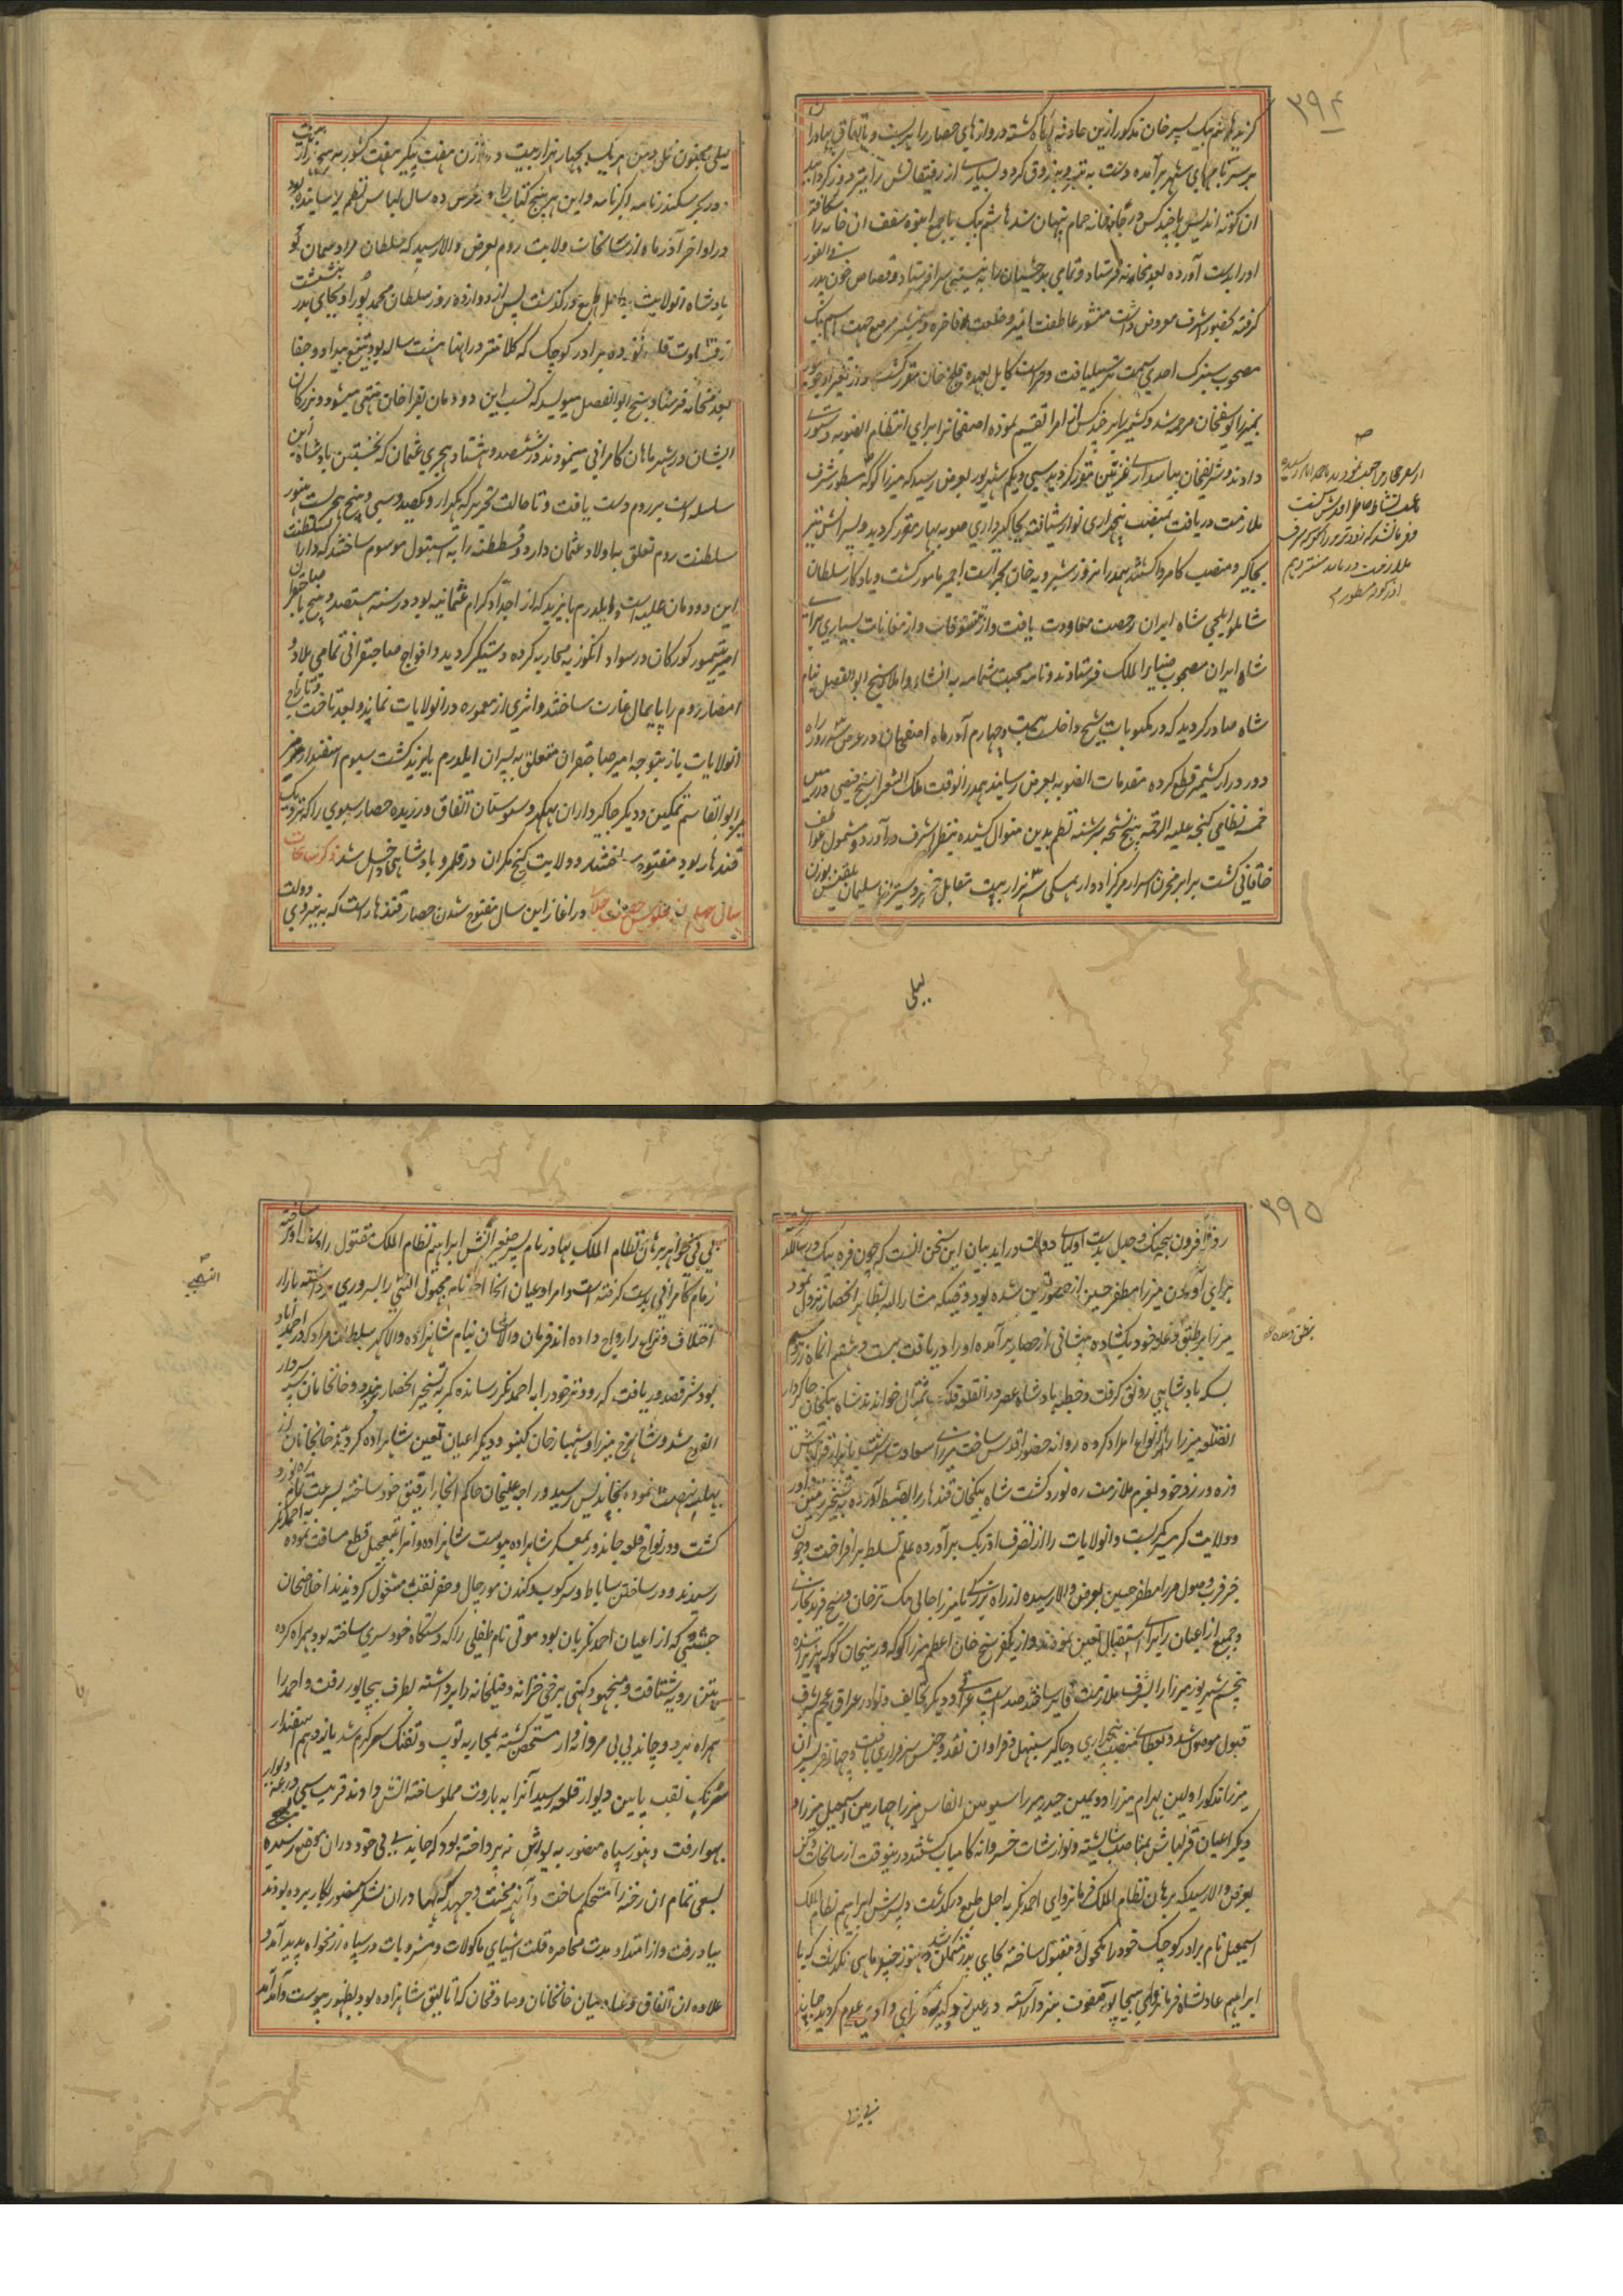 ۳۹۴
کزید هاشم بیک پسر خان مذکور ازین حادثه آگاه گشته دروازهای حصار را بربست و باتفاق بهادران
بر سر بامهای شهر برآمده دست به تیر و بندوق کرد و بسیاری از رفیقانش را
ان کوته اندیش با چند کس در گلخانه حمام پنهان شد هاشم بیک با جمع انبوه سقف ان خانه را شکافته
اورا بدست آورده بعدمخانه فرستاد و تمامی بدخشیان را به نیستی سرا فرستاد و قصاص خون پدر فی الفور
گرفته بحضور اشرف معروض داشت منشور عاطفت امیز و خلعت فاخره و شمشیر مرصع جهت هاشم بیک
مصحوب سبزک احدی سمت ترسیل یافت و حراست کابل بعهده قلیج خان مقرر گشت و در تغیر او جونپور
بمیرزا یوسفخان مرحمه شد و کشمیر را بر چند کس از امرا تقسیم نموده اصفخانرا برای انتظام الصوبه دستوری
دادند و شریفخان بپاسداری غزنین مقرر گردید سی و یکم شهریور بعرض رسید که میرزا کوکه مسطور شرف
ملازمت دریافت بمنصب پنجهزاری نوازش یافته بجاگیرداری صوبه بهار مقرر گردید و پسرانش نیز
بجاگیر و منصب کامروا گشتند همدرانروز شیرویه خان بحراست اجمیر مامور گشت و یادگار سلطان
شاملو ایلچی شاه ایران رخصت معاودت یافت و از تنسوقات و ارمغانات بسیاری برای
شاه ایران مصحوب ضیاء الملک فرستادند و نامه محبت شمامه به انشاء و املای شیخ ابوالفضل بنام
شاه صادر گردید که در مکتوبات شیخ داخلست بیست و چهارم آذرماه اصفخان در عرض سه روز راه
دور دراز کشمیر قطع کرده مقدمات الصوبه بعرض رسانید همدرانوقت ملک الشعرا شیخ فیضی در زمین
خمسه نظامی گنجه علیه الرحمه پنج نسخه سررشته نظم بدین منوال کشیده بنظر اشرف درآورد و مشمول عواطف
خاقانی گشت برابر مخزن اسرار مرکز ادوار بمکی سه هزار بیت مقابل خسرو شیرین سلیمان بلقیس بوزن
لیلی
لیلی مجنون نل دمن هر یک بچهار هزار بیت و در وزن هفت پیکر هفت کشور به پنج هزار بیت
و در بحر سکندرنامه اکبرنامه و این هر پنج کتاب را در عرض ده سال لباس نظم پوشانیده بود
در اواخر آذرماه از سانحات ولایت روم بعرض والا رسید که سلطان مراد عثمان لو
پادشاه انولایت باجل طبع درگذشت پس از دوازده روز سلطان محمد پور او بجای پدر بنشست
از شقاوت قلب نوزده برادر کوچک که کلانتر درانها هشت ساله بود بتیغ بیداد و جفا
بعدمخانه فرستاد شیخ ابوالفضل مینویسد که نسب این دودمان بقراخان منتهی میشود و بزرگان
ایشان در شیرماهان کامرانی مینمودند در ششصد و هشتاد هجری عثمان که نخستین پادشاه این
سلسله است بر روم دست یافت و تا حالت تحریر که یکهزار و یکصد و سی و پنج هجریست هنوز
سلطنت روم تعلق باولاد عثمان دارد و قسطنطنه را به استنبول موسوم ساختند که دارالسلطنت
این دودمان علیه است و ایلدرم بایزید که از اجداد کرام عثمانیه بود در سنه هشتصد و پنج با صاحبقران
امیر تیمور گورکان در سواد انگوریه محاربه کرده دستگیر گردید و افواج صاحبقرانی تمامی بلاد و
امصار روم را پایمال غارت ساختند و اثری از معموره در انولایات نماند و بعد تاخت و تاراج
انولایات باز بتوجه امیر صاحبقران متعلق به پسران ایلدرم بایزید گشت سیوم اسفندارمز
میر ابوالقاسم تمکین و دیگر جاگیرداران بهکهر و سیوستان اتفاق ورزیده حصار سیوی را که نزدیک
قندهار بود مفتوح ساختند و ولایت کیچ مکران در قلمرو پادشاهی داخل شد ذکر سانحات
سال چهلم از جلوس حضرت جلالی در آغاز این سال مفتوح شدن حصار قندهار است که به نیروی دولت
۳۹۵
روزافزون بی جنگ و جدل بدست اولیای دولت درآمد بیان این سخن انست که چون قره بیک و میرسالار
برای آوردن میرزا مظفر حسین از حضور تعین شده بود و وقتیکه مشارالیه بظاهر انحصار نزول نمود
میرزا بر طبق وعده خود بکشاده پیشانی از حصار برآمده اورا دریافت بیست و ششم انماه زر و سیم
بسکه پادشاهی رونق گرفت و خطبه پادشاه عصر در انقلعه فلک تمثال خواندند شاه بیکخان جاگیردار
انقلعه میرزا را بانواع امداد کرده روانه حضور اقدس ساخت
و زه و زرود خود بعزم ملازمت ره نورد گشت شاه بیکخان قندهار را بضبط آورده به تسخیر زمین داور
و ولایت گرمسیر کمر بست و انولایات را از تصرف اوزبک برآورده علم تسلط برافراخت و چون
خبر قرب وصول میرزا مظفر حسین بعرض والا رسید از راه بزرگی با میرزا جانی بیک ترخان و شیخ فرید بخشی
و جمیع از اعیان برای استقبال تعین نمودند و از یکفرسنخ خان اعظم میرزا کوکه و زینخان کوکه پذیرا شده
پنجم شهریور میرزا را بشرف ملازمت فایز ساختند صد اسپ عراقی و دیگر تحایف و نوادر عراق عجم بشرف
قبول موصول شد و بعطای منصب پنجهزاری و جاگیر سنبهل و فراوان نقد و جنس سرفرازی یافت و چهار نفر پسران
میرزا مذکور اولین بهرام میرزا دویمین حیدر میرزا سیومین الفاس میرزا چهارمین اسمعیل میرزا و
دیگر اعیان قزلباش بمناصب شایسته و نوازشات خسروانه کامیاب گشتند درینوقت از سانحات دکن
بعرض والا رسید که برهان نظام الملک فرمانروای احمدنگر باجل طبع درگذشت و پسرش ابراهیم نظام الملک
اسمعیل نام برادر کوچک خود را مکحول و مقبول ساخته بجای پدر متمکن شد و هنوز چند ماهی نگذشت که با
ابراهیم عادلشاه فرمانروای بیجاپور صفوف نبرد آراسته در عین زد و گیر تیره رای وادی عدم گردید چاند
بی بی
بطبق وعده
بی بی خواهر برهان نظام الملک بهادر نام پسر صغیر السن ابراهیم نظام الملک مقتول را دست آویز ساخته
زمام کامرانی بدست گرفته است و امرا و اعیان انجا احمد نام مجهول النسبی را بسروری برداشته بازار
اختلاف و نزاع را رواج داده اند فرمان والاشان بنام شاهزاده والاگهر سلطان مراد که در احمداباد
بود شرف صدور یافت که زودتر خود را به احمدنگر رسانده کمر به تسخیر انحصار بربندد و خانخانان سپهسردار
انفوج شد و شاهرخ میرزا و شهبازخان کنبو و دیگر اعیان بتعین شاهزاده گردیدند خانخانان از
بیلپسه نهضت نموده بخاندیس رسید و راجه علیخان حاکم انجا را رفیق خود ساخته بسرعت تمام ره نورد
گشت و در نواح قلعه چاندور بمعسکر شاهزاده پیوست شاهزاده و امرا بتعجیل قطع مسافت نموده به احمدنگر
رسیدند و در ساختن ساباط و سرکوب و کندن مورچال و حفر نقب مشغول گردیدند اخلاصخان
حبشی که از اعیان احمدنگریان بود موتی نام طفلی را که دستگاه خودسری ساخته بود همراه کرده
بپتن رویه شتافت و منجهو دکنی برخی خزانه و فیلخانه را برداشته بطرف بیجاپور رفت و احمد را
همراه برد و چاند بی بی مردانه وار متحصن گشته بمحاربه توپ و تفنگ سرگرم شد یازدهم اسفندار
سرنگ نقب پایین دیوار قلعه رسید آنرا به باروت مملو ساخته آتش دادند قریب سی درعه دیوار
بهوا رفت و هنوز سپاه منصور به یورش نپرداخته بود که چاند بی بی خود در ان موضع رسیده
بسعی تمام ان رخنه را مستحکم ساخت و آنهمه محنت و جهد که بهادران لشکر منصور بکار برده بودند
بباد رفت و از امتداد مدت محاصره قلت اشیای ماکولات و مشروبات در سپاه رزمخواه پدید آمد و
علاوه ان اتفاق و عناد میان خانخانان و صادقخان که اتالیق شاهزاده بود بظهور پیوست و آمد آمد